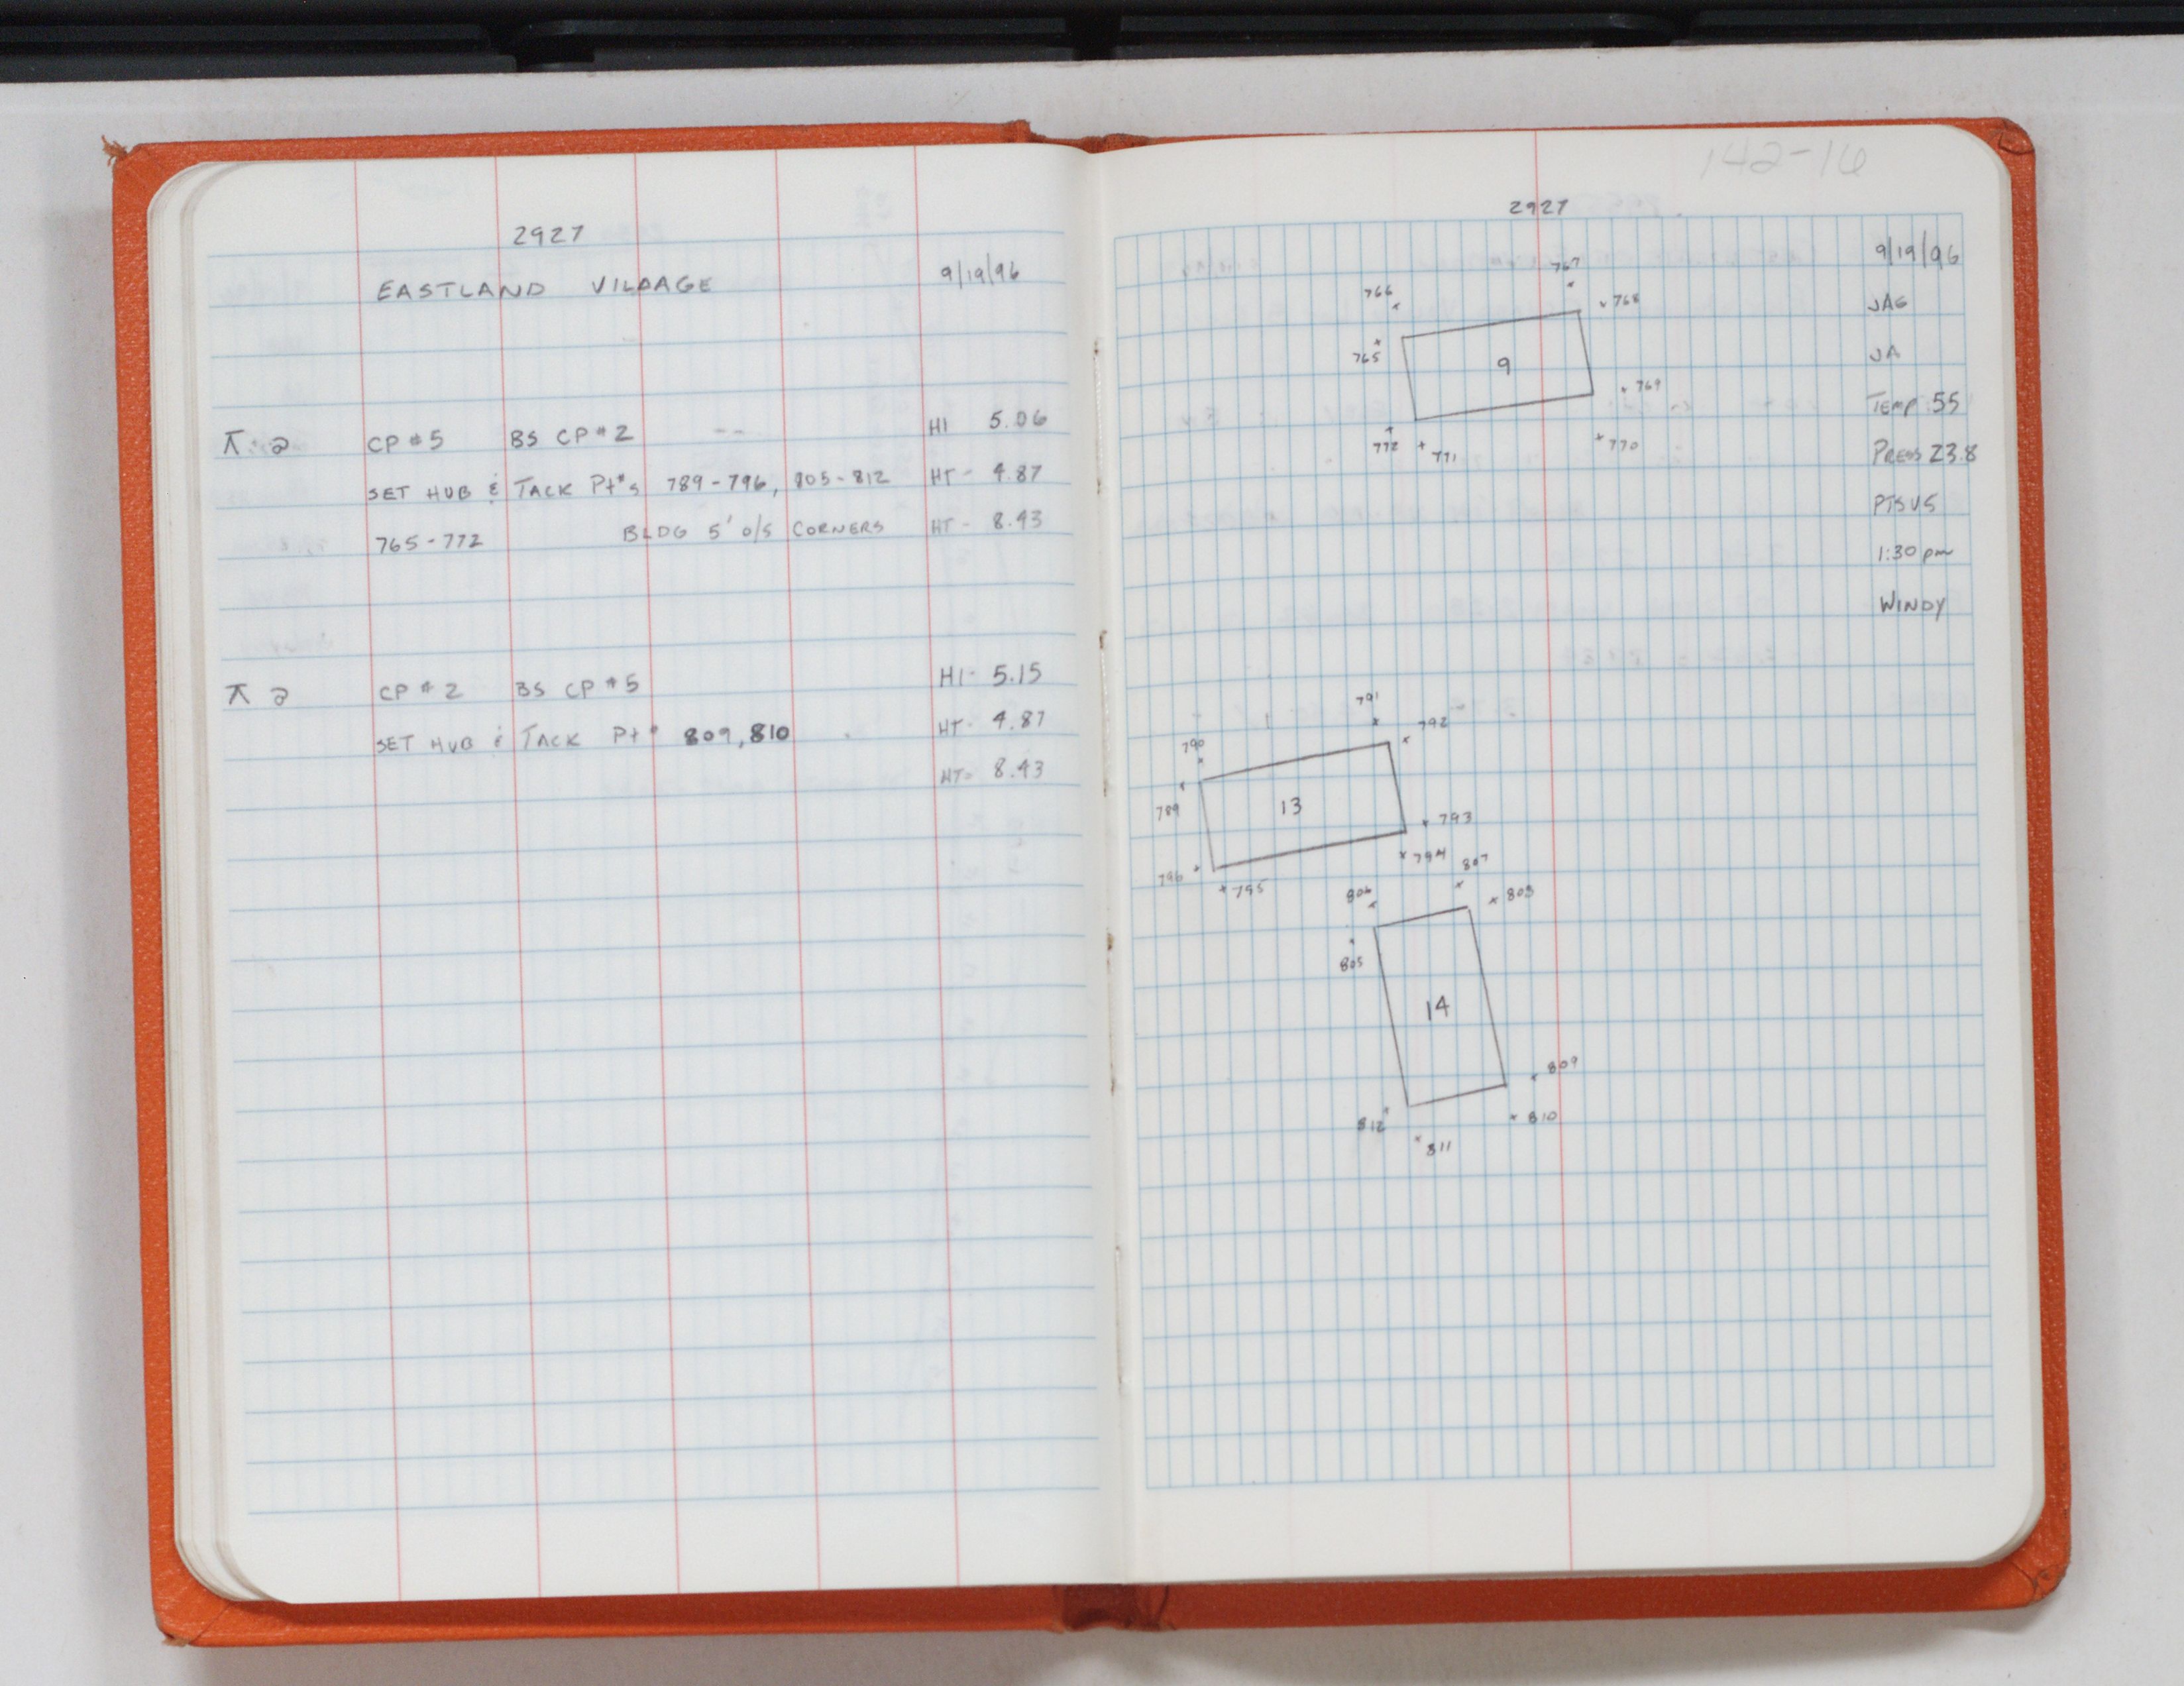 2927
EASTLAND VILAAGE 9/19/96
⊼ @ CP #5 BS CP #2 HI 5.06
SET HUB & TACK Pt#s 789-796, 805-812 HT- 4.87
765-772 BLDG 5' o/s CORNERS HT- 8.43
⊼ @ CP # 2 BS CP #5 HI- 5.15
SET HUB & TACK Pt# 809, 810 HT- 4.87
HT= 8.43
142-16
2927
9/19/96
JAG
JA
TEMP 55
PRESS 23.8
PTSV5
1:30 pm
WINDY
767
766
768
765
9
769
772
771
770
791
792
790
789
13
793
794
796
795
807
806
808
805
14
809
810
812
811